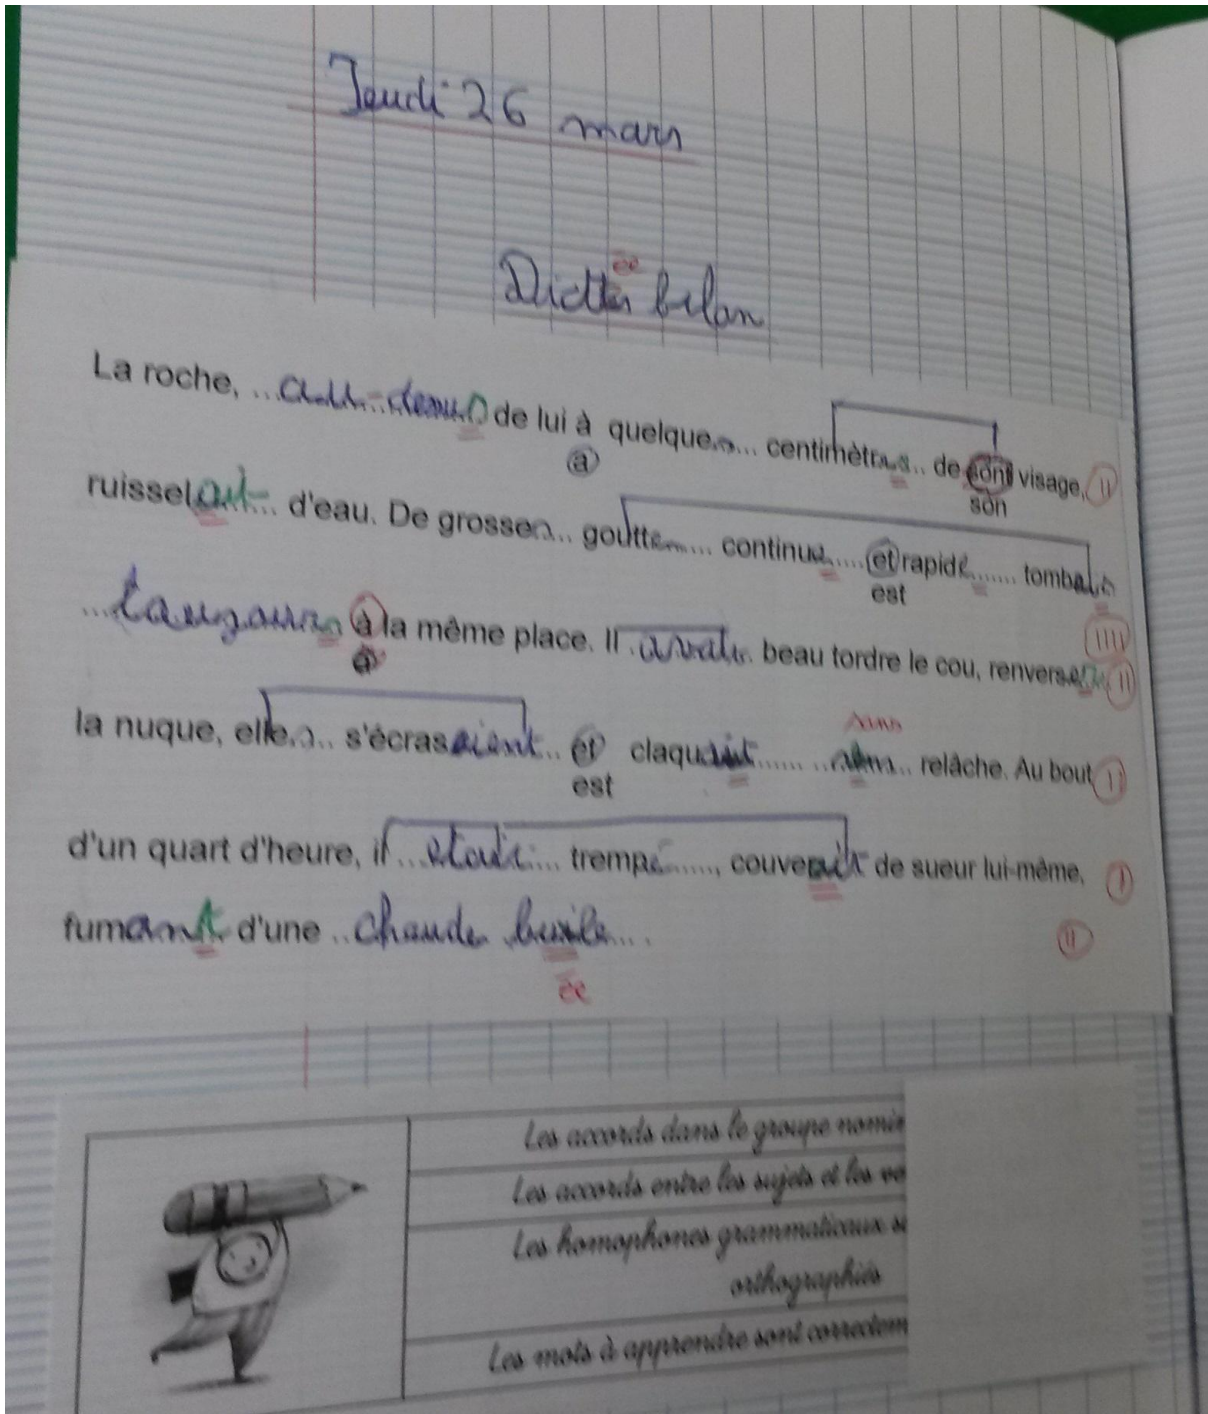 Jeudi 26 mars
ée
Dictés bilan
La roche, ... au-dessus de lui à quelques... centimètres.. de sont visage, II
a son
ruisselant... d'eau. De grosses.. gouttes...... continue..... et rapide....... tombait
est
...taujours à la même place. Il .avait. beau tordre le cou, IIII
a renverser II
sans
la nuque, elles.. s'écrasaient.. et claquait...... ........ relâche. Au bout II
est
d'un quart d'heure, il ...était.... trempé....., couverait de sueur lui-même, I
fumant d'une ..chaude buile.... II
ée
Les accords dans le groupe nomin
Les accords entre les sujets et les ve
Les homophones grammaticaux s
orthographiés
Les mots à apprendre sont correctem